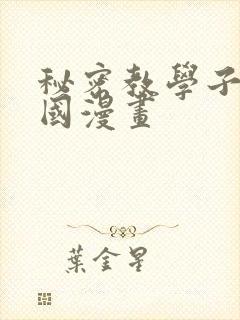 秘密教學子
國漫畫
葉金星